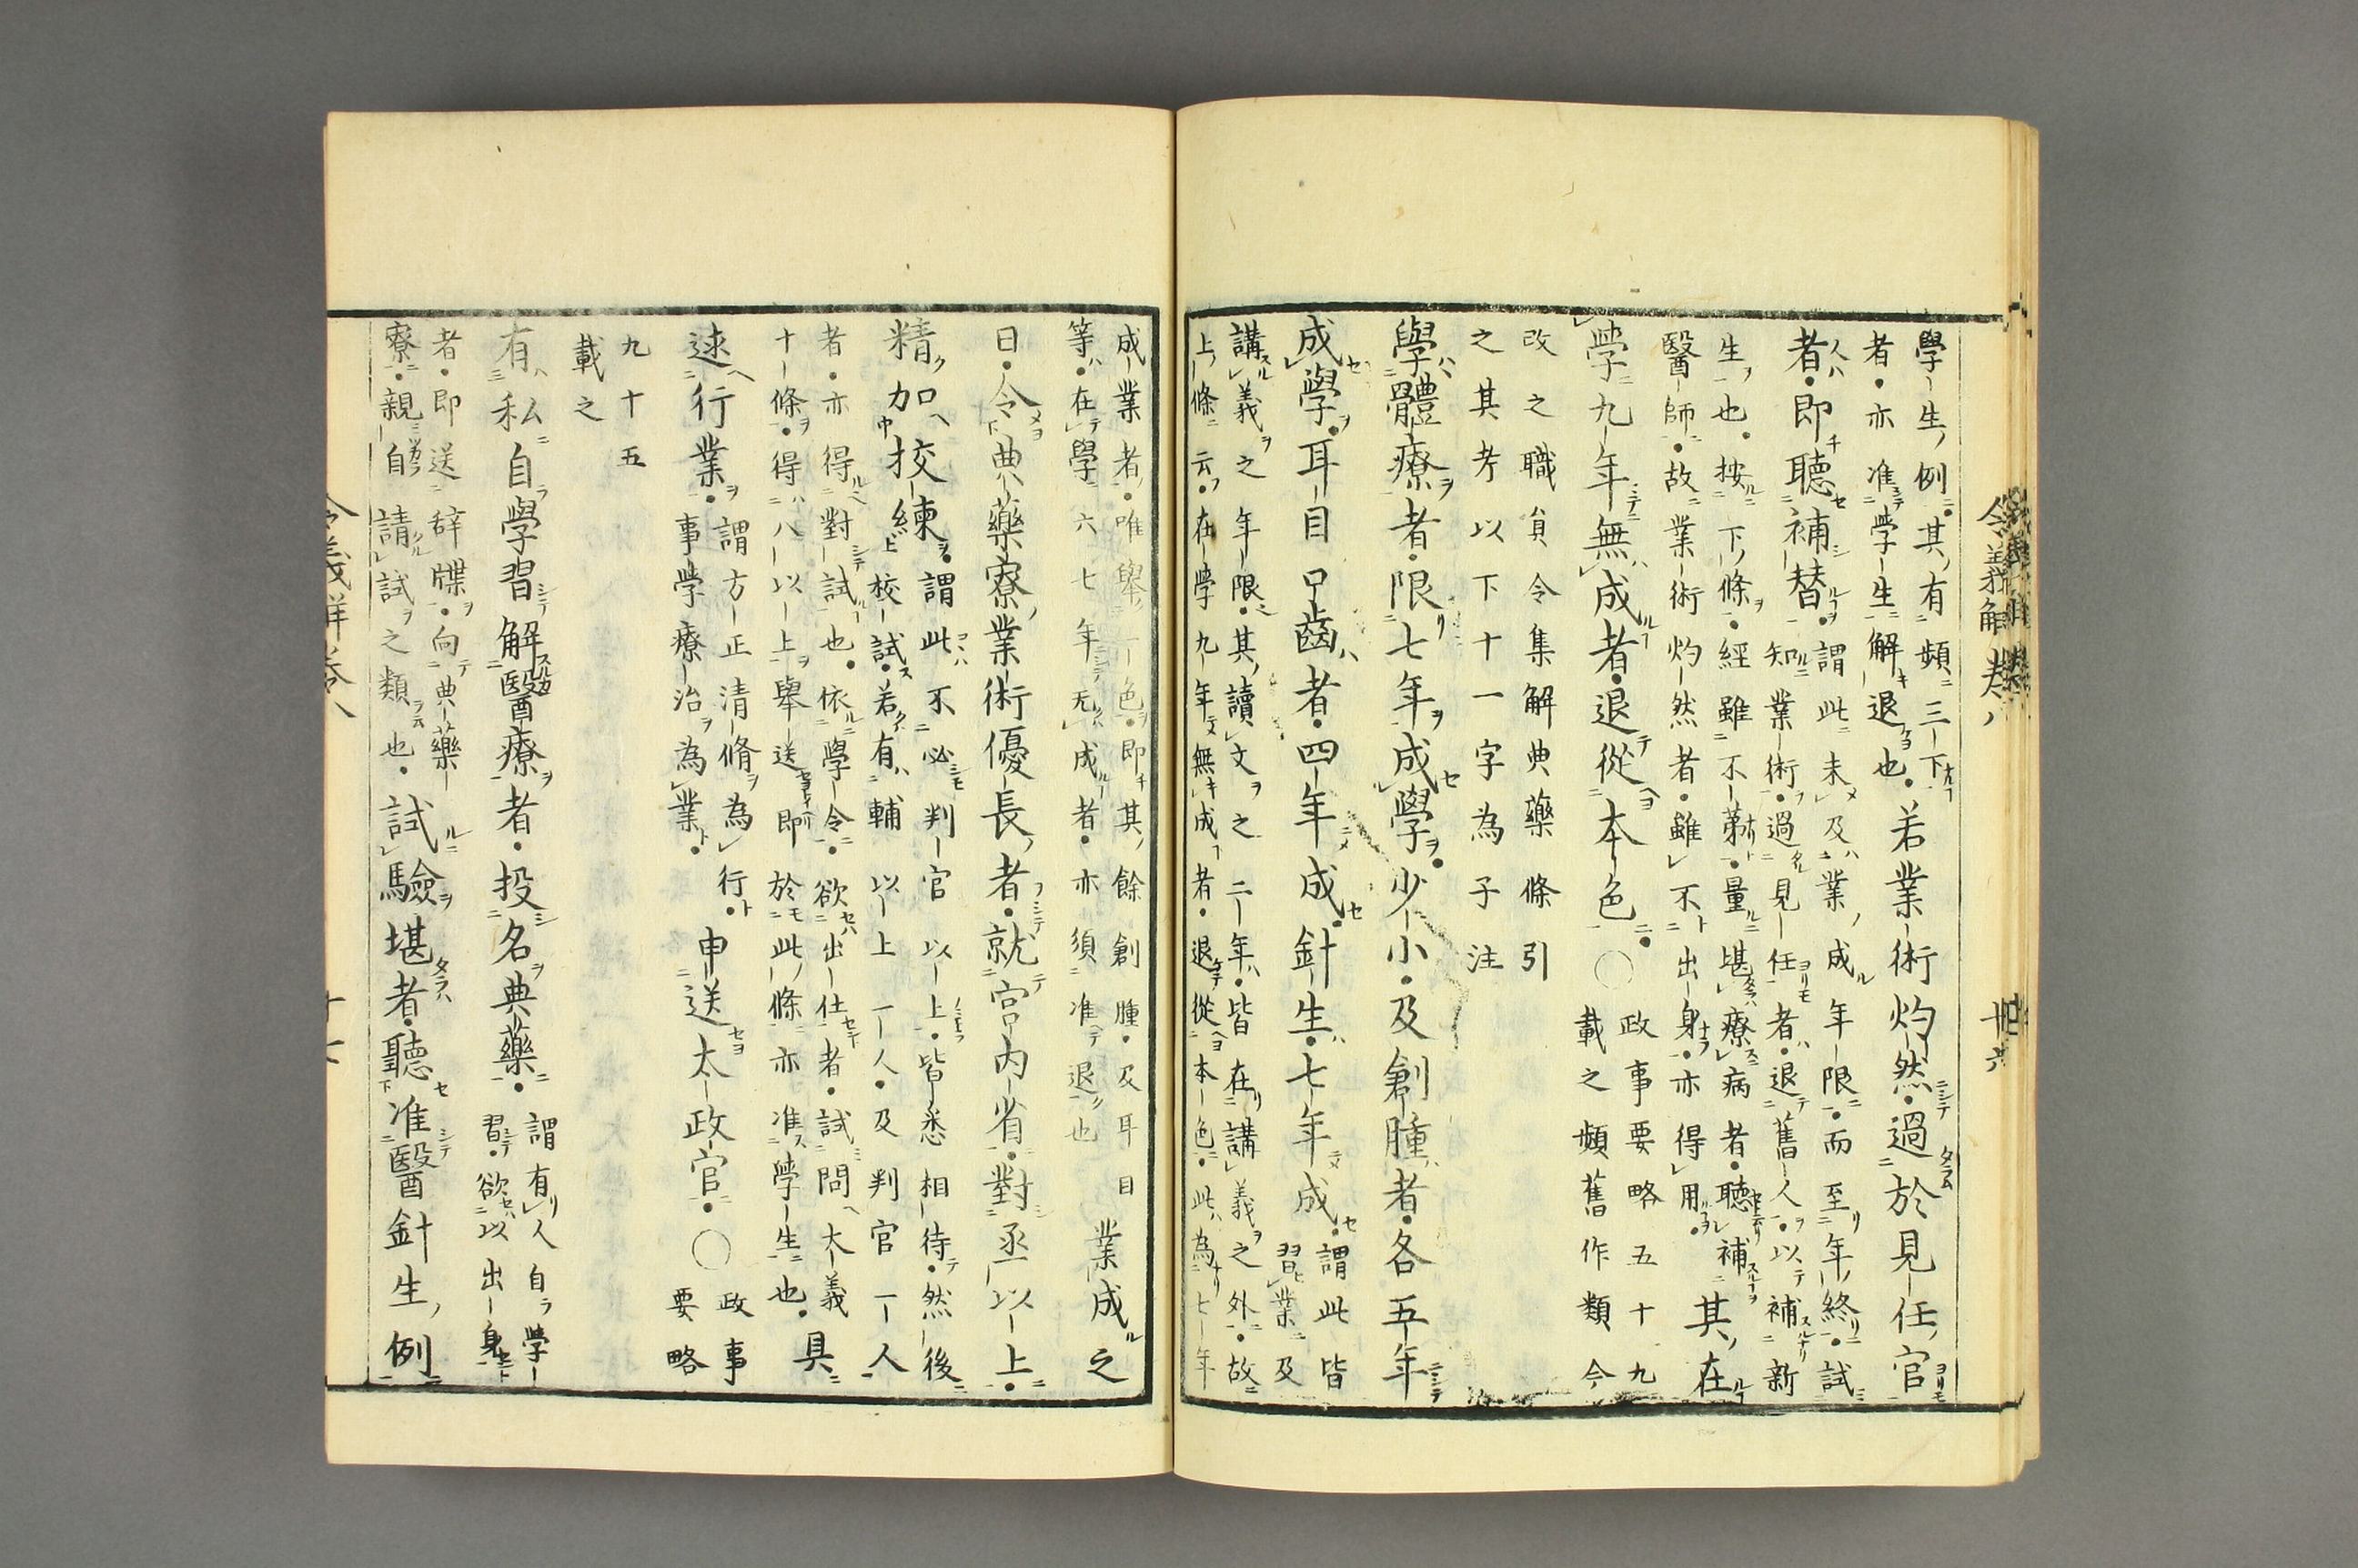 學生例其有頻三下
者亦准學生解退也若業術灼然過於見任官
者即聽補替謂此未及業成年限而至年終試
知業術過見任者退舊人以補新
生也按下條經雖不第量堪療病者聽補其在
醫師故業術灼然者雖不出身亦得用
學九年無成者退從本色〇政事要略五十九
載之頻舊作類今
改之職員令集解典藥條引
之其考以下十一字為子注
學體療者限七年成學少小及創腫者各五年
成學耳目口齒者四年成針生七年成謂此皆
習業及
講義之年限其讀文之二年皆在講義之外故
上條云在學九年無成者退從本色此為七年
成業者唯舉一色即其餘創腫及耳目
等在學六七年无成者亦須准退也
業成之
日令典藥寮業術優長者就宮內省對丞以上
精加校練謂此不必判官以上皆悉相待然後
校試若有輔以上一人及判官一人
者亦得對試也依學令欲出仕者試問大義
十條得八以上舉送即於此條亦准學生也具
述行業謂方正清脩為行
事學療治為業申送太政官〇政事
要略
九十五
載之
有私自學習解醫療者投名典藥謂有人自學
習欲以出身
者即送辞牒向典藥
寮親自請試之類也試驗堪者聽准醫針生例
令義解卷八